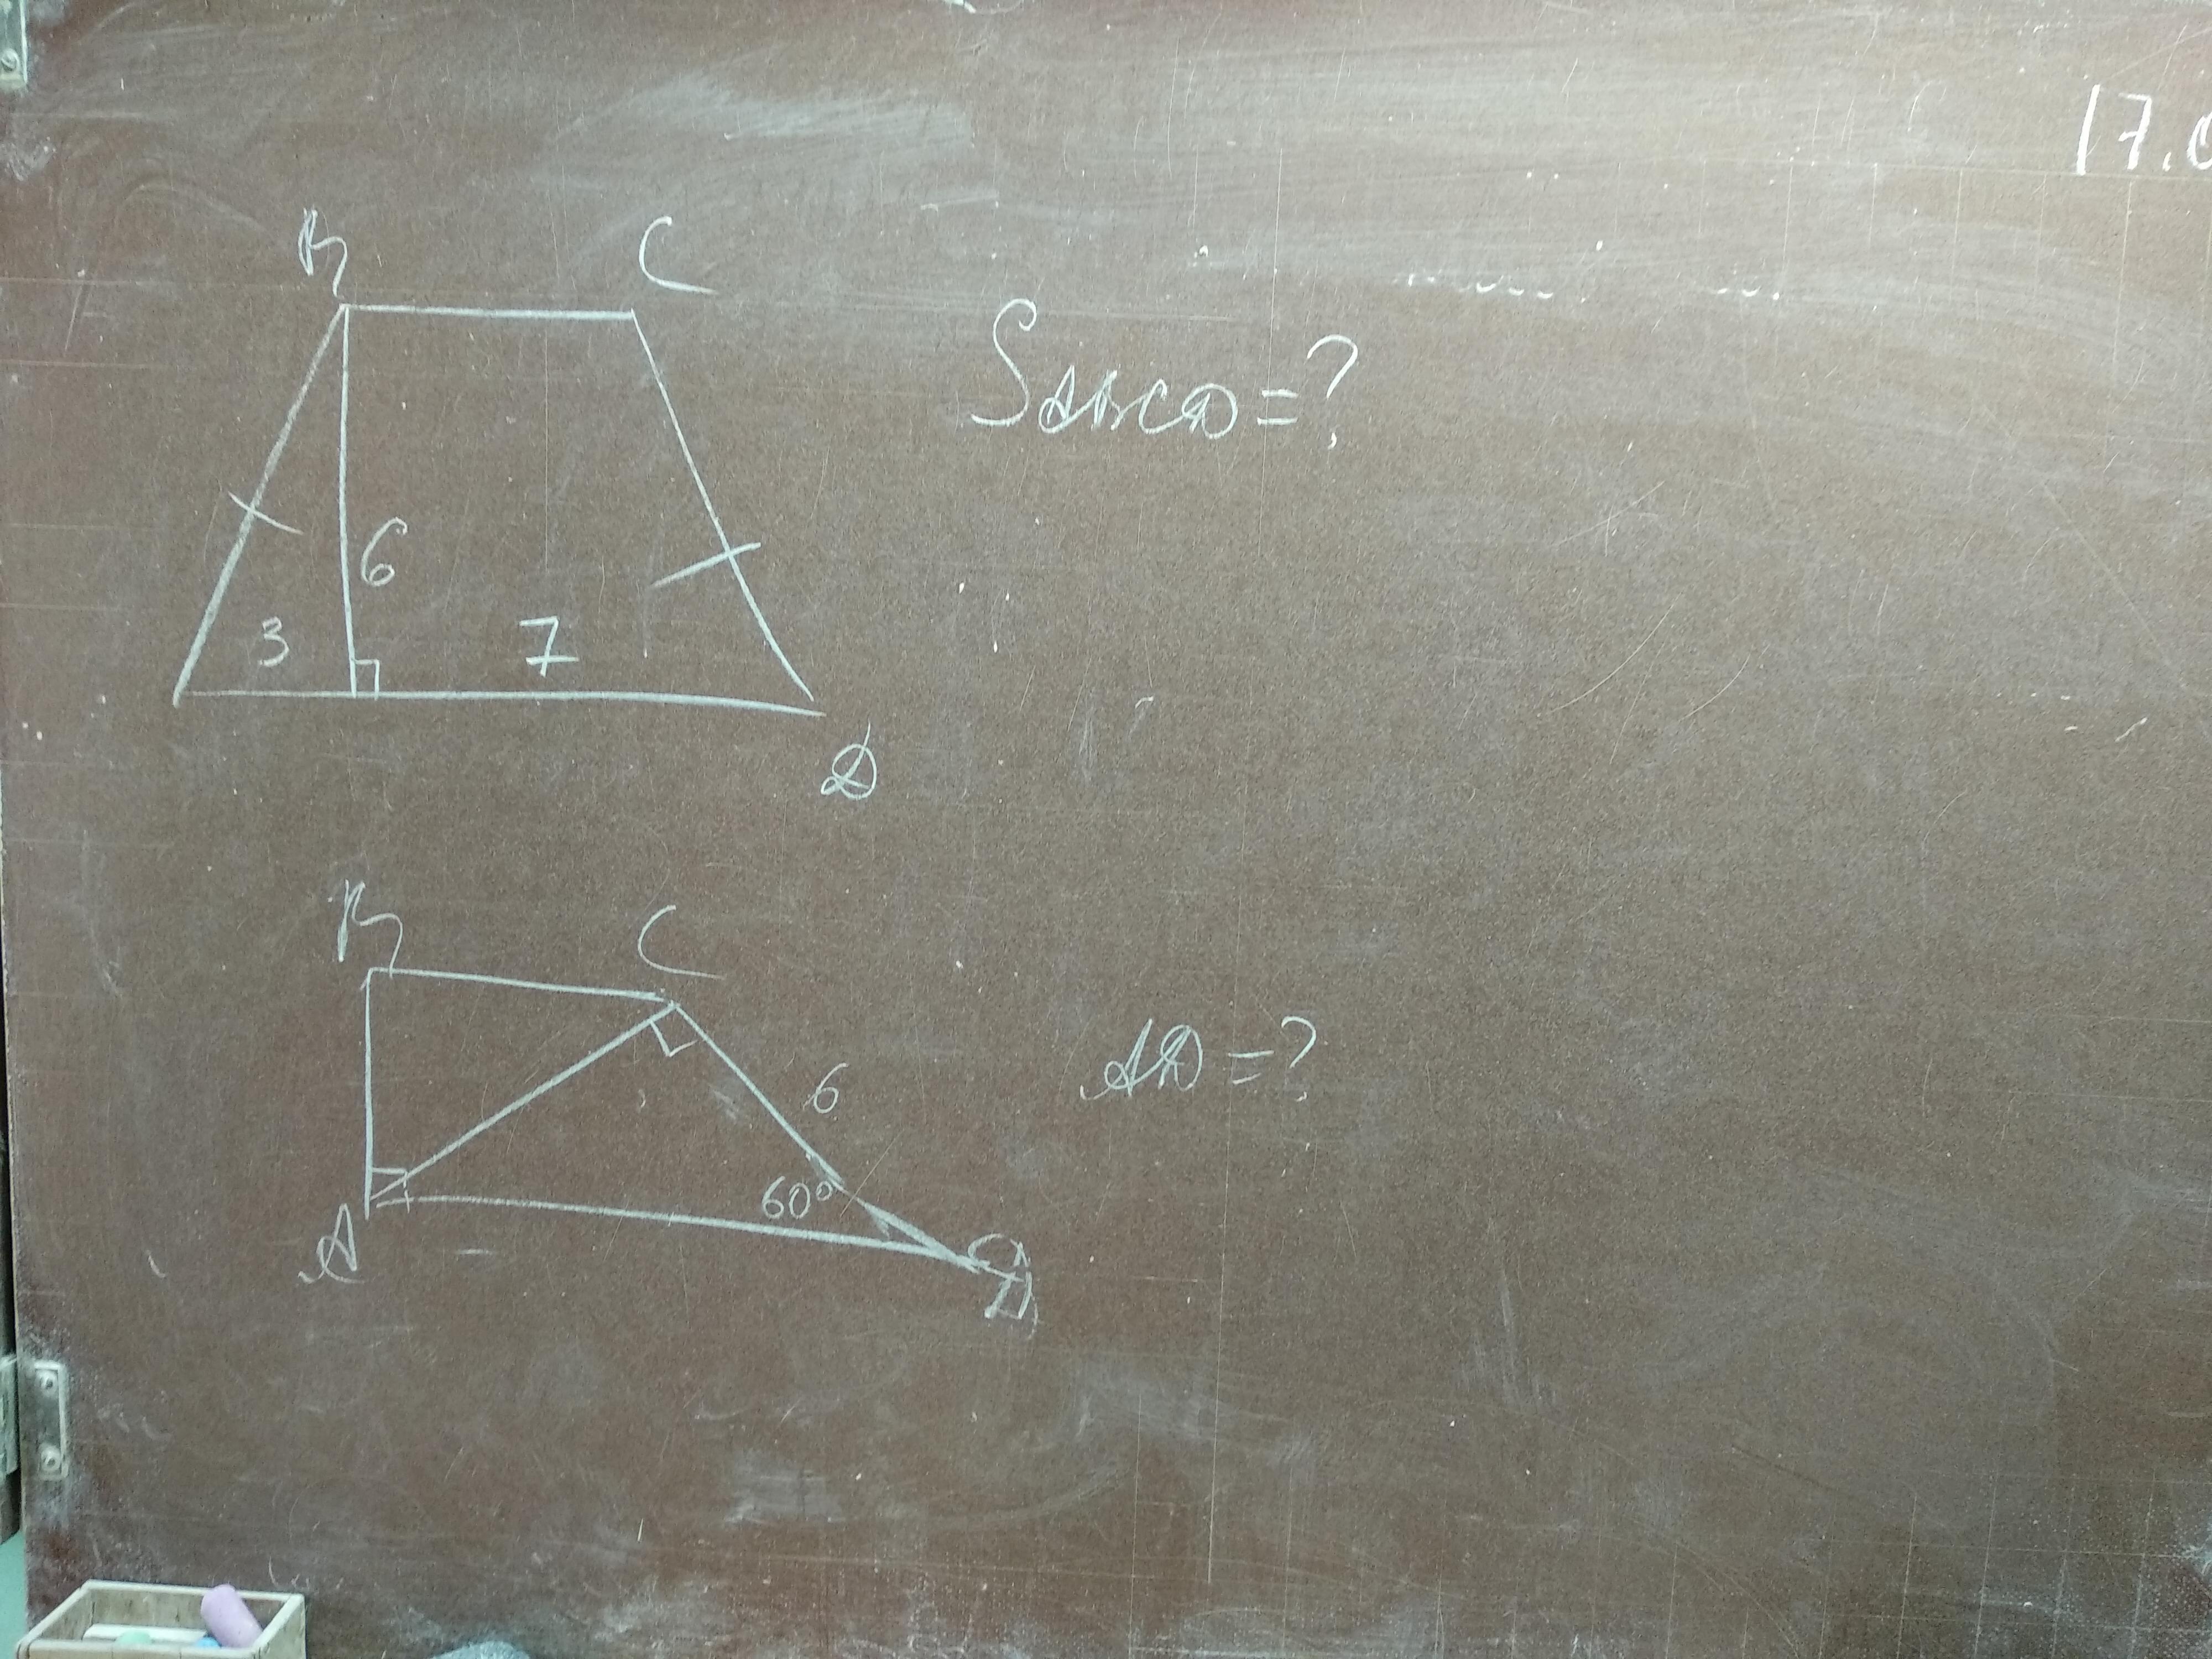 17.0
B C
S ABCD = ?
6
3 7
D
B C
AD = ?
6
60°
A D